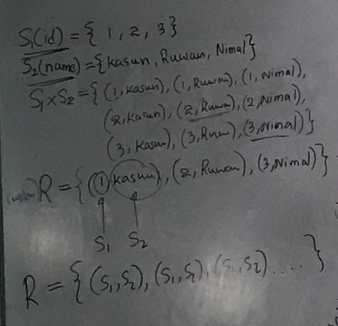 S₁(id) = { 1, 2, 3}
S₂(name) = {Kasun, Ruwan, Nimal}
S₁×S₂ = {(1, Kasun), (1, Ruwan), (1, Nimal),
(2, Kasun), (2, Ruwan), (2, Nimal),
(3, Kasun), (3, Ruwan), (3, Nimal)}
R = {(1, Kasun), (2, Ruwan), (3, Nimal)}
S₁ S₂
R = {(S₁, S₂), (S₁, S₂), (S₁, S₂) .....}